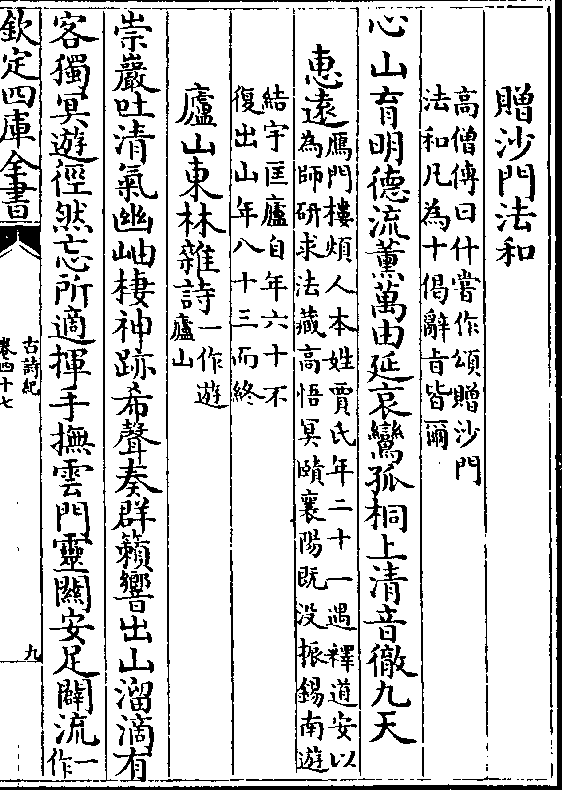 贈沙門法和
高僧傳曰什嘗作頌贈沙門
法和凡為十偈辭㫖皆爾
心山育明德流薰萬由延哀鸞孤桐上清音徹九天
惠遠
鴈門樓煩人本姓賈氏年二十一遇釋道安以
為師研求法藏高悟冥賾襄陽既没振錫南遊
結宇匡廬自年六十不
復出山年八十三而終
廬山東林雜詩一作遊
廬山
崇巖吐清氣幽岫棲神跡希聲奏群籟響出山溜滴有
客獨冥遊徑然忘所適揮手撫雲門靈關安足闢流一
作
欽定四庫全書
古詩紀
卷四十七
九